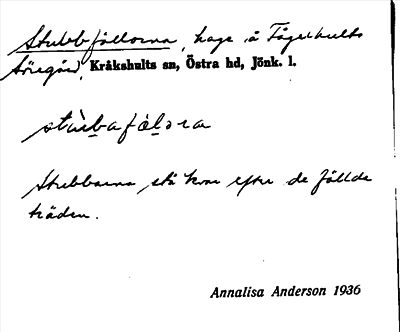 Stubbfällorna, hage å Fägerhults
Söregård, Kråkshults sn, Östra hd, Jönk. l.
stu̇bafälɔra
Stubbarna stå kvar efter de fällda
träden.
Annalisa Anderson 1936